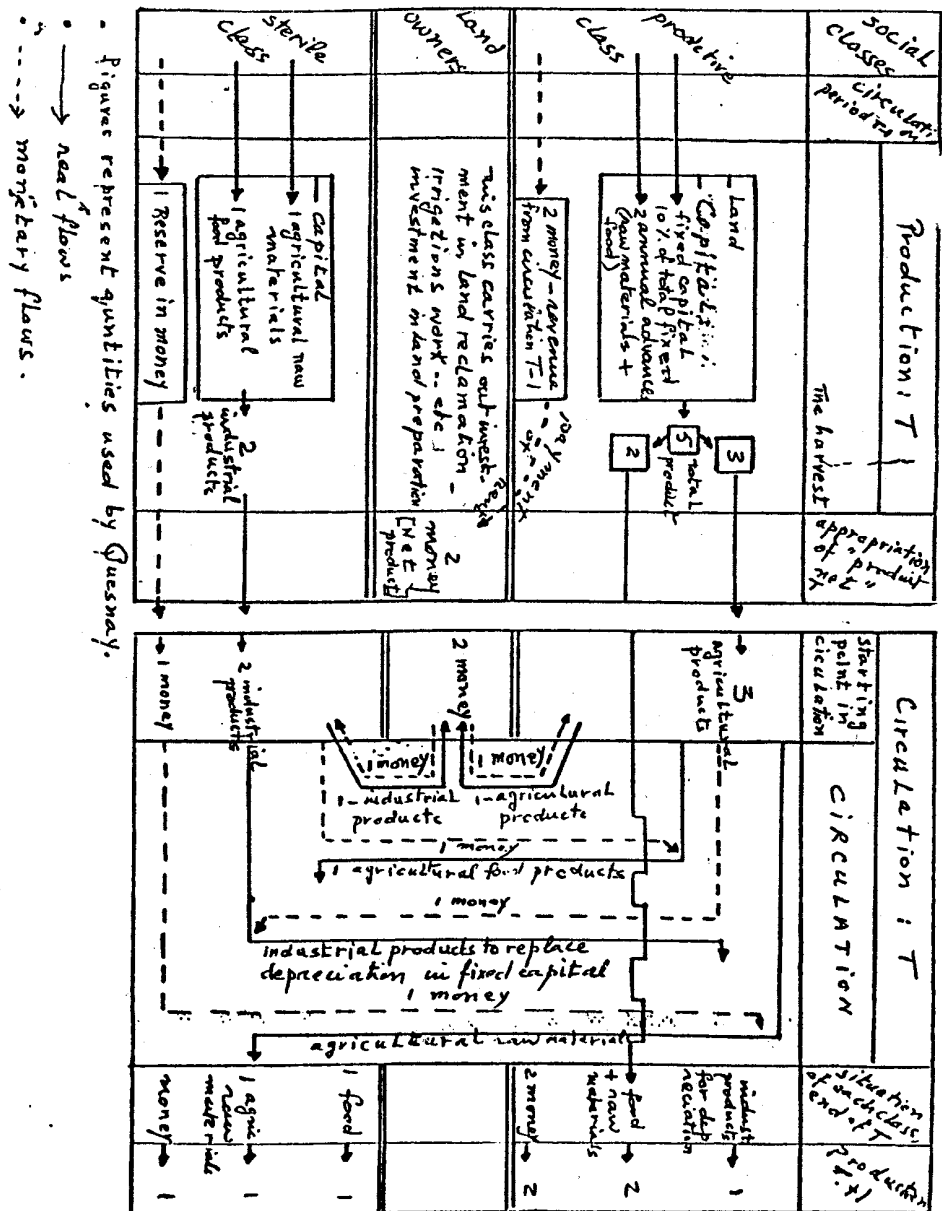 social
classes
circulati
period
on
Production : T
The harvest
appropriation
of "product
net "
Circulation : T
starting
point in
ciculation
CIRCULATION
situation
of each class,
end of T
production
t.+1
prodetive
class
Land
"Capital":
fixed capital
10% of total fixed
2 annual advances
(raw materials +
food)
3
5
total
product
2
2 money-revenue
from circulation T-1
payment
3
agricultural
products
indust
products
for dep
reciation
1
food
+ raw
materials
2
2 money
2
Land
owners
This class carries out invest-
ment in land reclamation -
irrigations work -- etc
investment in land preparation
2
money
[Net
product]
2 money
1 money
1 money
1-industrial
products
1-agricultural
products
1 money
1 agricultural food products
1 money
industrial products to replace
depreciation in fixed capital
1 money
agricultural raw material
sterile
class
capital
1 agricultural raw
materials
1 agricultural
food products
2
industrial
products
1 Reserve in money
2 industrial
products
1 money
1 food
1
1 agric
raw
materials
1
money
1
• Figures represent quntities used by Quesnay.
• real flows
• monetary flows.